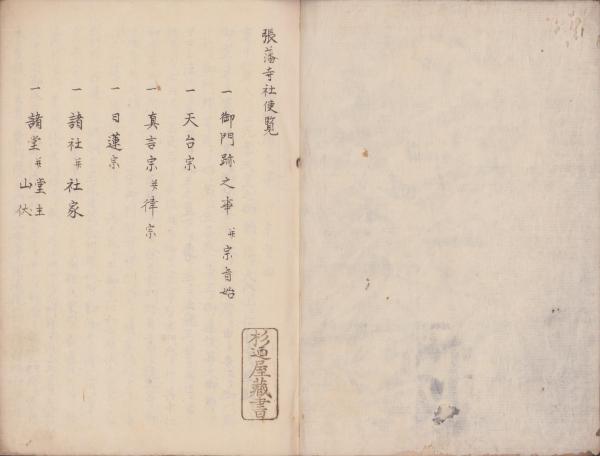 張藩寺社便覧
一 御門跡之事 并 宗旨始
一 天台宗
一 真言宗 并 律宗
一 日蓮宗
一 諸社 并 社家
一 諸堂 并 堂主
山伏
杉迺屋蔵書